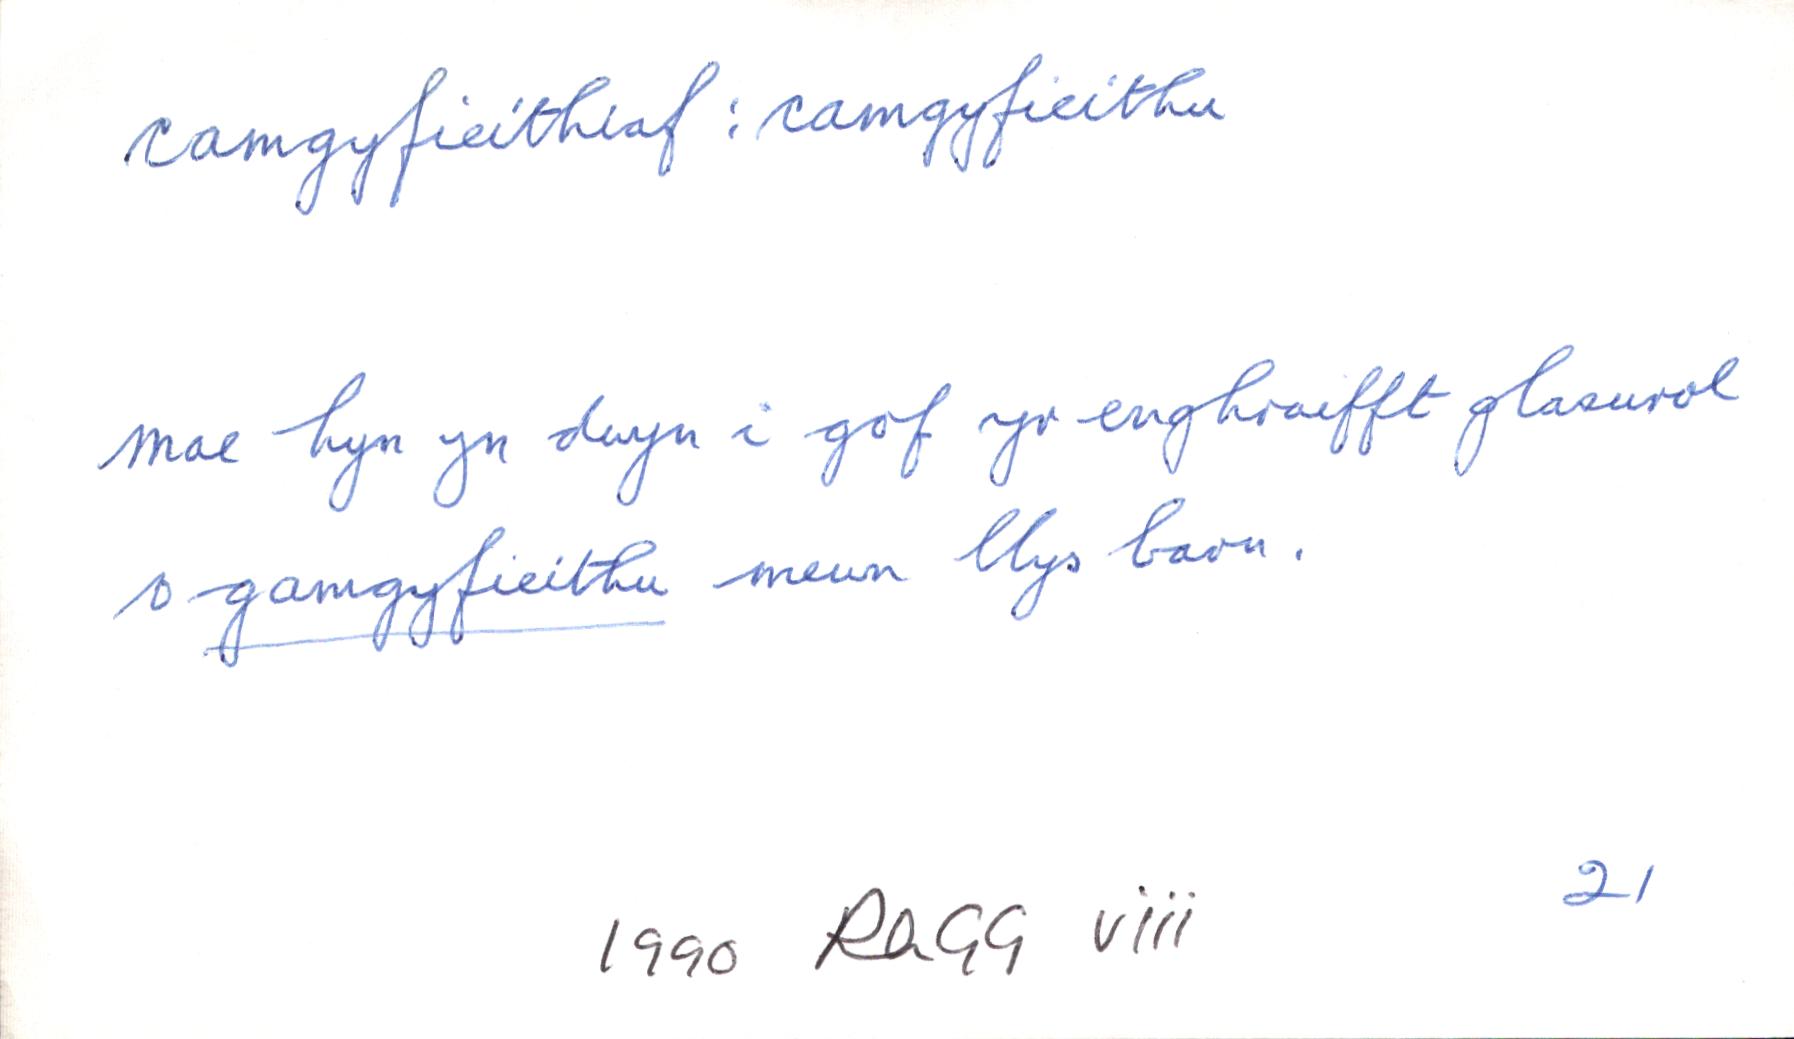 camgyfieithiaf : camgyfieithu
Mae hyn yn dwyn i gof yr enghraifft glasurol
o gamgyfieithu mewn llys barn.
21
1990 RhGG viii